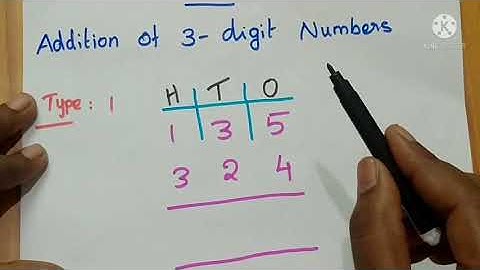 Addition of 3-digit Numbers
Type: 1
H T O
1 3 5
3 2 4